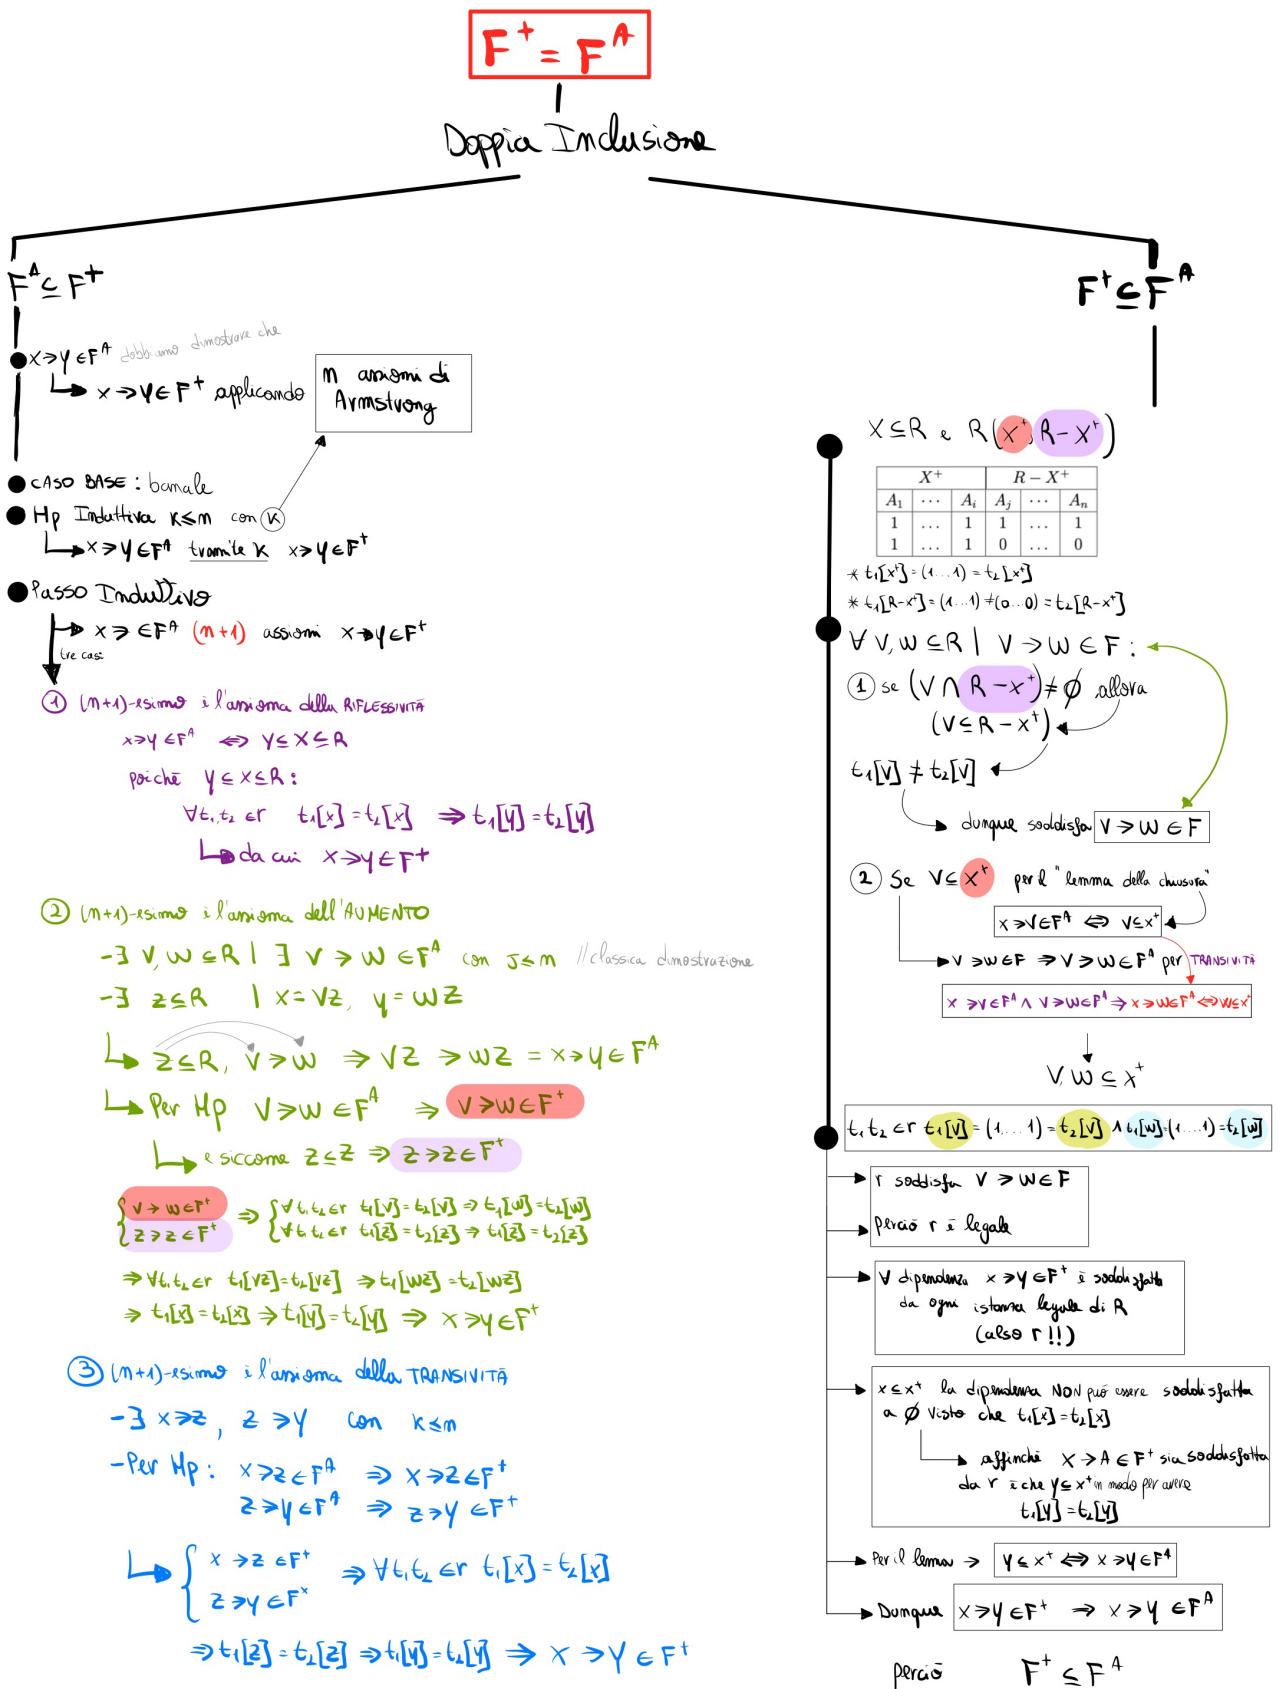 F⁺ = Fᴬ
Doppia Inclusione
Fᴬ ⊆ F⁺
X→Y ∈ Fᴬ dobbiamo dimostrare che
X→Y ∈ F⁺ applicando
n assiomi di
Armstrong
CASO BASE : banale
Hp Induttiva K≤n con K
X→Y ∈ Fᴬ tramite K X→Y ∈ F⁺
Passo Induttivo
X→ ∈ Fᴬ (n+1) assiomi X→Y ∈ F⁺
tre casi
① (n+1)-esimo è l'assioma della RIFLESSIVITÀ
X→Y ∈ Fᴬ ⇔ Y ⊆ X ⊆ R
poiché Y ⊆ X ⊆ R :
∀t₁,t₂ ∈ r t₁[X] = t₂[X] ⇒ t₁[Y] = t₂[Y]
da cui X→Y ∈ F⁺
② (n+1)-esimo è l'assioma dell'AUMENTO
-∃ V, W ⊆ R | ∃ V → W ∈ Fᴬ con J≤n //classica dimostrazione
-∃ Z ⊆ R | X = VZ, Y = WZ
Z ⊆ R, V→W ⇒ VZ → WZ = X→Y ∈ Fᴬ
Per Hp V→W ∈ Fᴬ ⇒ V→W ∈ F⁺
e siccome Z ⊆ Z ⇒ Z→Z ∈ F⁺
{ V→W ∈ F⁺ ⇒ { ∀t₁,t₂ ∈ r t₁[V] = t₂[V] ⇒ t₁[W] = t₂[W]
Z→Z ∈ F⁺ ∀t₁,t₂ ∈ r t₁[Z] = t₂[Z] ⇒ t₁[Z] = t₂[Z]
⇒ ∀t₁,t₂ ∈ r t₁[VZ] = t₂[VZ] ⇒ t₁[WZ] = t₂[WZ]
⇒ t₁[X] = t₂[X] ⇒ t₁[Y] = t₂[Y] ⇒ X→Y ∈ F⁺
③ (n+1)-esimo è l'assioma della TRANSIVITÀ
-∃ X→Z, Z→Y con K≤n
-Per Hp : X→Z ∈ Fᴬ ⇒ X→Z ∈ F⁺
Z→Y ∈ Fᴬ ⇒ Z→Y ∈ F⁺
{ X→Z ∈ F⁺ ⇒ ∀t₁,t₂ ∈ r t₁[X] = t₂[X]
Z→Y ∈ F⁺
⇒ t₁[Z] = t₂[Z] ⇒ t₁[Y] = t₂[Y] ⇒ X → Y ∈ F⁺
F⁺ ⊆ Fᴬ
X ⊆ R e R(X⁺, R-X⁺)
X⁺ R − X⁺
A₁ ⋯ Aᵢ Aⱼ ⋯ Aₙ
1 … 1 1 … 1
1 … 1 0 … 0
* t₁[X⁺] = (1...1) = t₂[X⁺]
* t₁[R-X⁺] = (1...1) ≠ (0...0) = t₂[R-X⁺]
∀ V, W ⊆ R | V → W ∈ F :
① se (V ∩ R-X⁺) ≠ ∅ allora
(V ⊆ R-X⁺)
t₁[V] ≠ t₂[V]
dunque soddisfa V→W ∈ F
② Se V ⊆ X⁺ per il "lemma della chiusura"
X→V ∈ Fᴬ ⇔ V ⊆ X⁺
V→W ∈ F ⇒ V→W ∈ Fᴬ per TRANSIVITÀ
X→V ∈ Fᴬ ∧ V→W ∈ Fᴬ ⇒ X→W ∈ Fᴬ ⇔ W ⊆ X⁺
V, W ⊆ X⁺
t₁ t₂ ∈ r t₁[V] = (1....1) = t₂[V] ∧ t₁[W] = (1....1) = t₂[W]
r soddisfa V→W ∈ F
perciò r è legale
∀ dipendenza X→Y ∈ F⁺ è soddisfatta
da ogni istanza legale di R
(also r !!)
X ⊆ X⁺ la dipendenza NON può essere soddisfatta
a ∅ visto che t₁[X] = t₂[X]
affinché X→A ∈ F⁺ sia soddisfatta
da r è che Y ⊆ X⁺ in modo per avere
t₁[Y] = t₂[Y]
Per il lemma → Y ⊆ X⁺ ⇔ X→Y ∈ Fᴬ
Dunque X→Y ∈ F⁺ ⇒ X→Y ∈ Fᴬ
perciò F⁺ ⊆ Fᴬ